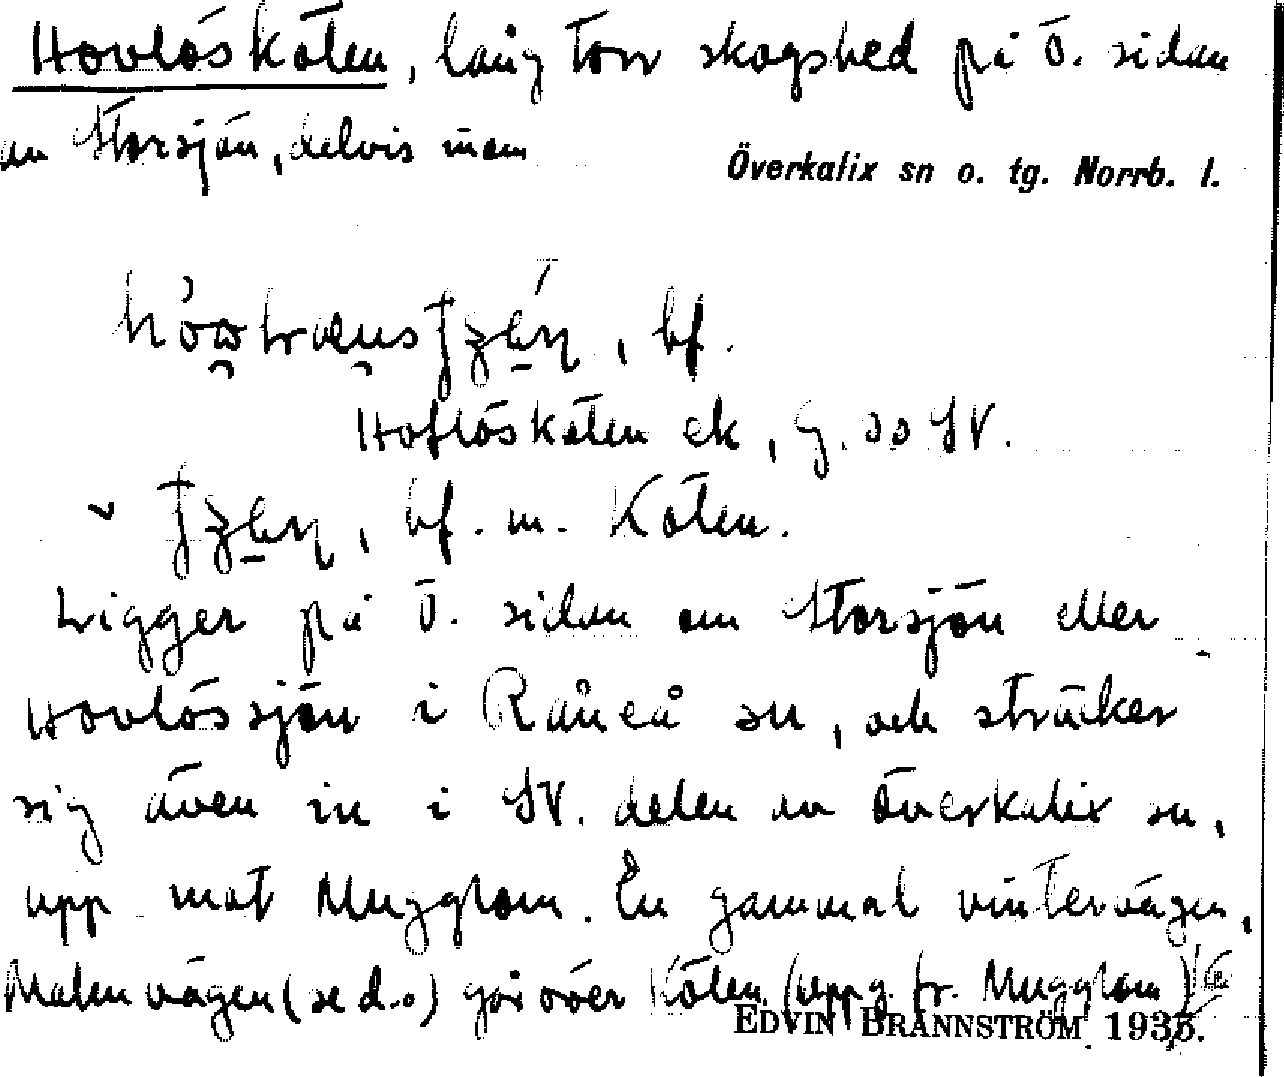 Hovlöskölen, lång torr skogshed på ö. sidan
av Storsjön, delvis inom
Överkalix sn o. tg. Norrb. l.
, bf.
Hoflöskölen ek, G. 20 SV.
, bf. m. Kölen.
Ligger på ö. sidan om Storsjön eller
Hovlössjön i Råneå sn, och sträcker
sig även in i SV. delen av Överkalix sn,
upp mot Muggtom. En gammal vintervägen,
Malenvägen (se d.o) går över Kölen. (uppg. fr. Muggtom)
EDVIN BRÄNNSTRÖM 1935.